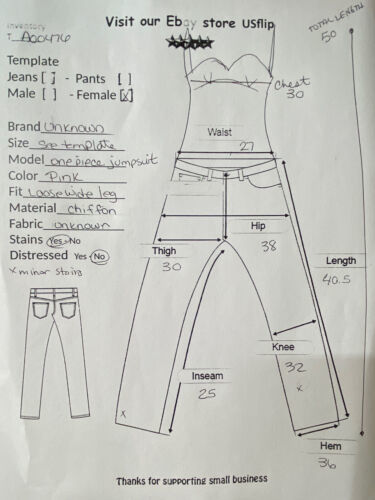 Inventory
Visit our Ebay store USflip
TOTAL LENGTH
50
T_A00476
Template
Jeans [ ] - Pants [ ]
Male [ ] - Female [X]
Chest
30
Brand Unknown
Size See template
Model one piece jumpsuit
Color Pink
Fit Loose wide leg
Material chiffon
Fabric unknown
Stains Yes - No
Distressed Yes - No
x minor stains
Waist
27
Hip
38
Thigh
30
Length
40.5
Knee
32
x
Inseam
25
x
Hem
36
Thanks for supporting small business